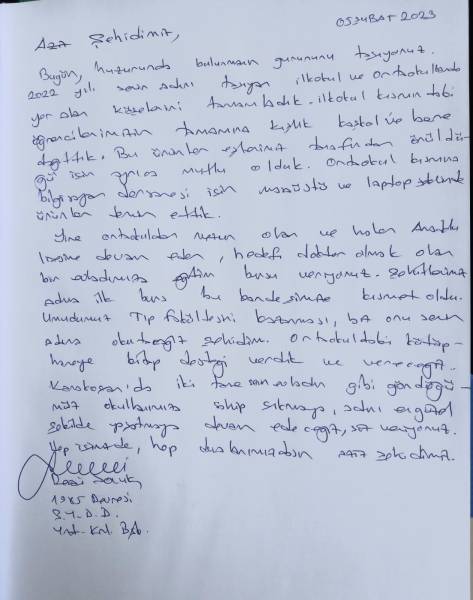 05 ŞUBAT 2023
Aziz Şehidimiz,
Bugün, huzurunda bulunmanın gururunu taşıyoruz.
2022 yılı senin adını taşıyan ilkokul ve ortaokullarda
yer alan köşelerini tamamladık. İlkokul kısmındaki
öğrencilerimizin tamamına kışlık kaşkol ve bere
dağıttık. Bu ürünler eşlerimiz tarafından örüldü-
ğü için ayrıca mutlu olduk. Ortaokul kısmına
bilgisayar dersanesi için masaüstü ve laptop şeklinde
ürünler temin ettik.
Yine ortaokuldan mezun olan ve halen Anadolu
lisesine devam eden, hedefi doktor olmak olan
bir evladımıza eğitim bursu veriyoruz. Şehitlerimiz
adına ilk burs bu kardeşimize kısmet oldu.
Umudumuz Tıp fakültesini kazanması, biz onu senin
adına okutacağız şehidim. Ortaokuldaki kütüp-
haneye kitap desteği verdik ve vereceğiz.
iki tane evladın gibi gördüğü-
müz okullarımıza sahip çıkmaya, adını en güzel
şekilde yaşatmaya devam edeceğiz, söz veriyoruz.
Hep bizimle, hep dualarımızdasın aziz şehidimiz.
1985 Devresi
Ş.Y.D.D.
Ynt. Krl. Bşk.